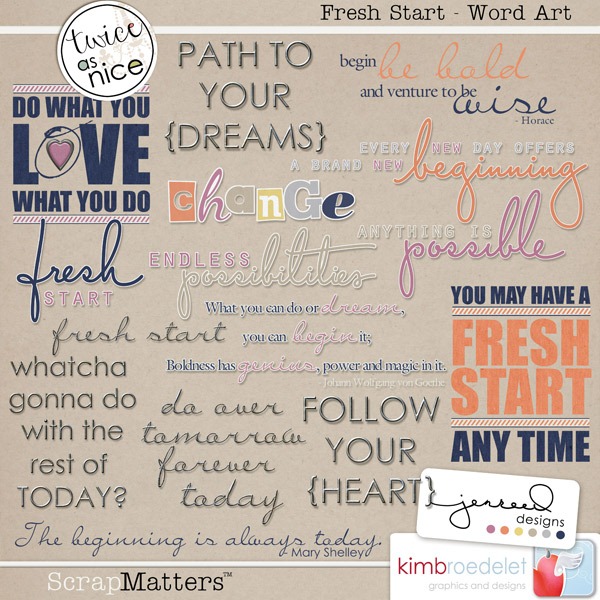 Fresh Start - Word Art
twice
as
nice
PATH TO
YOUR
{DREAMS}
begin be bold
and venture to be wise
- Horace
DO WHAT YOU
LOVE
WHAT YOU DO
EVERY NEW DAY OFFERS
A BRAND NEW beginning
change
ANYTHING IS
possible
fresh
START
ENDLESS
possibilities
What you can do or dream,
you can begin it;
Boldness has genius, power and magic in it.
Johann Wolfgang von Goethe
YOU MAY HAVE A
FRESH
START
ANY TIME
fresh start
whatcha
gonna do
with the
rest of
TODAY?
do over
tomorrow
forever
today
FOLLOW
YOUR
{HEART}
The beginning is always today.
- Mary Shelley
jenreed
designs
kimbroedelet
graphics and designs
ScrapMatters™